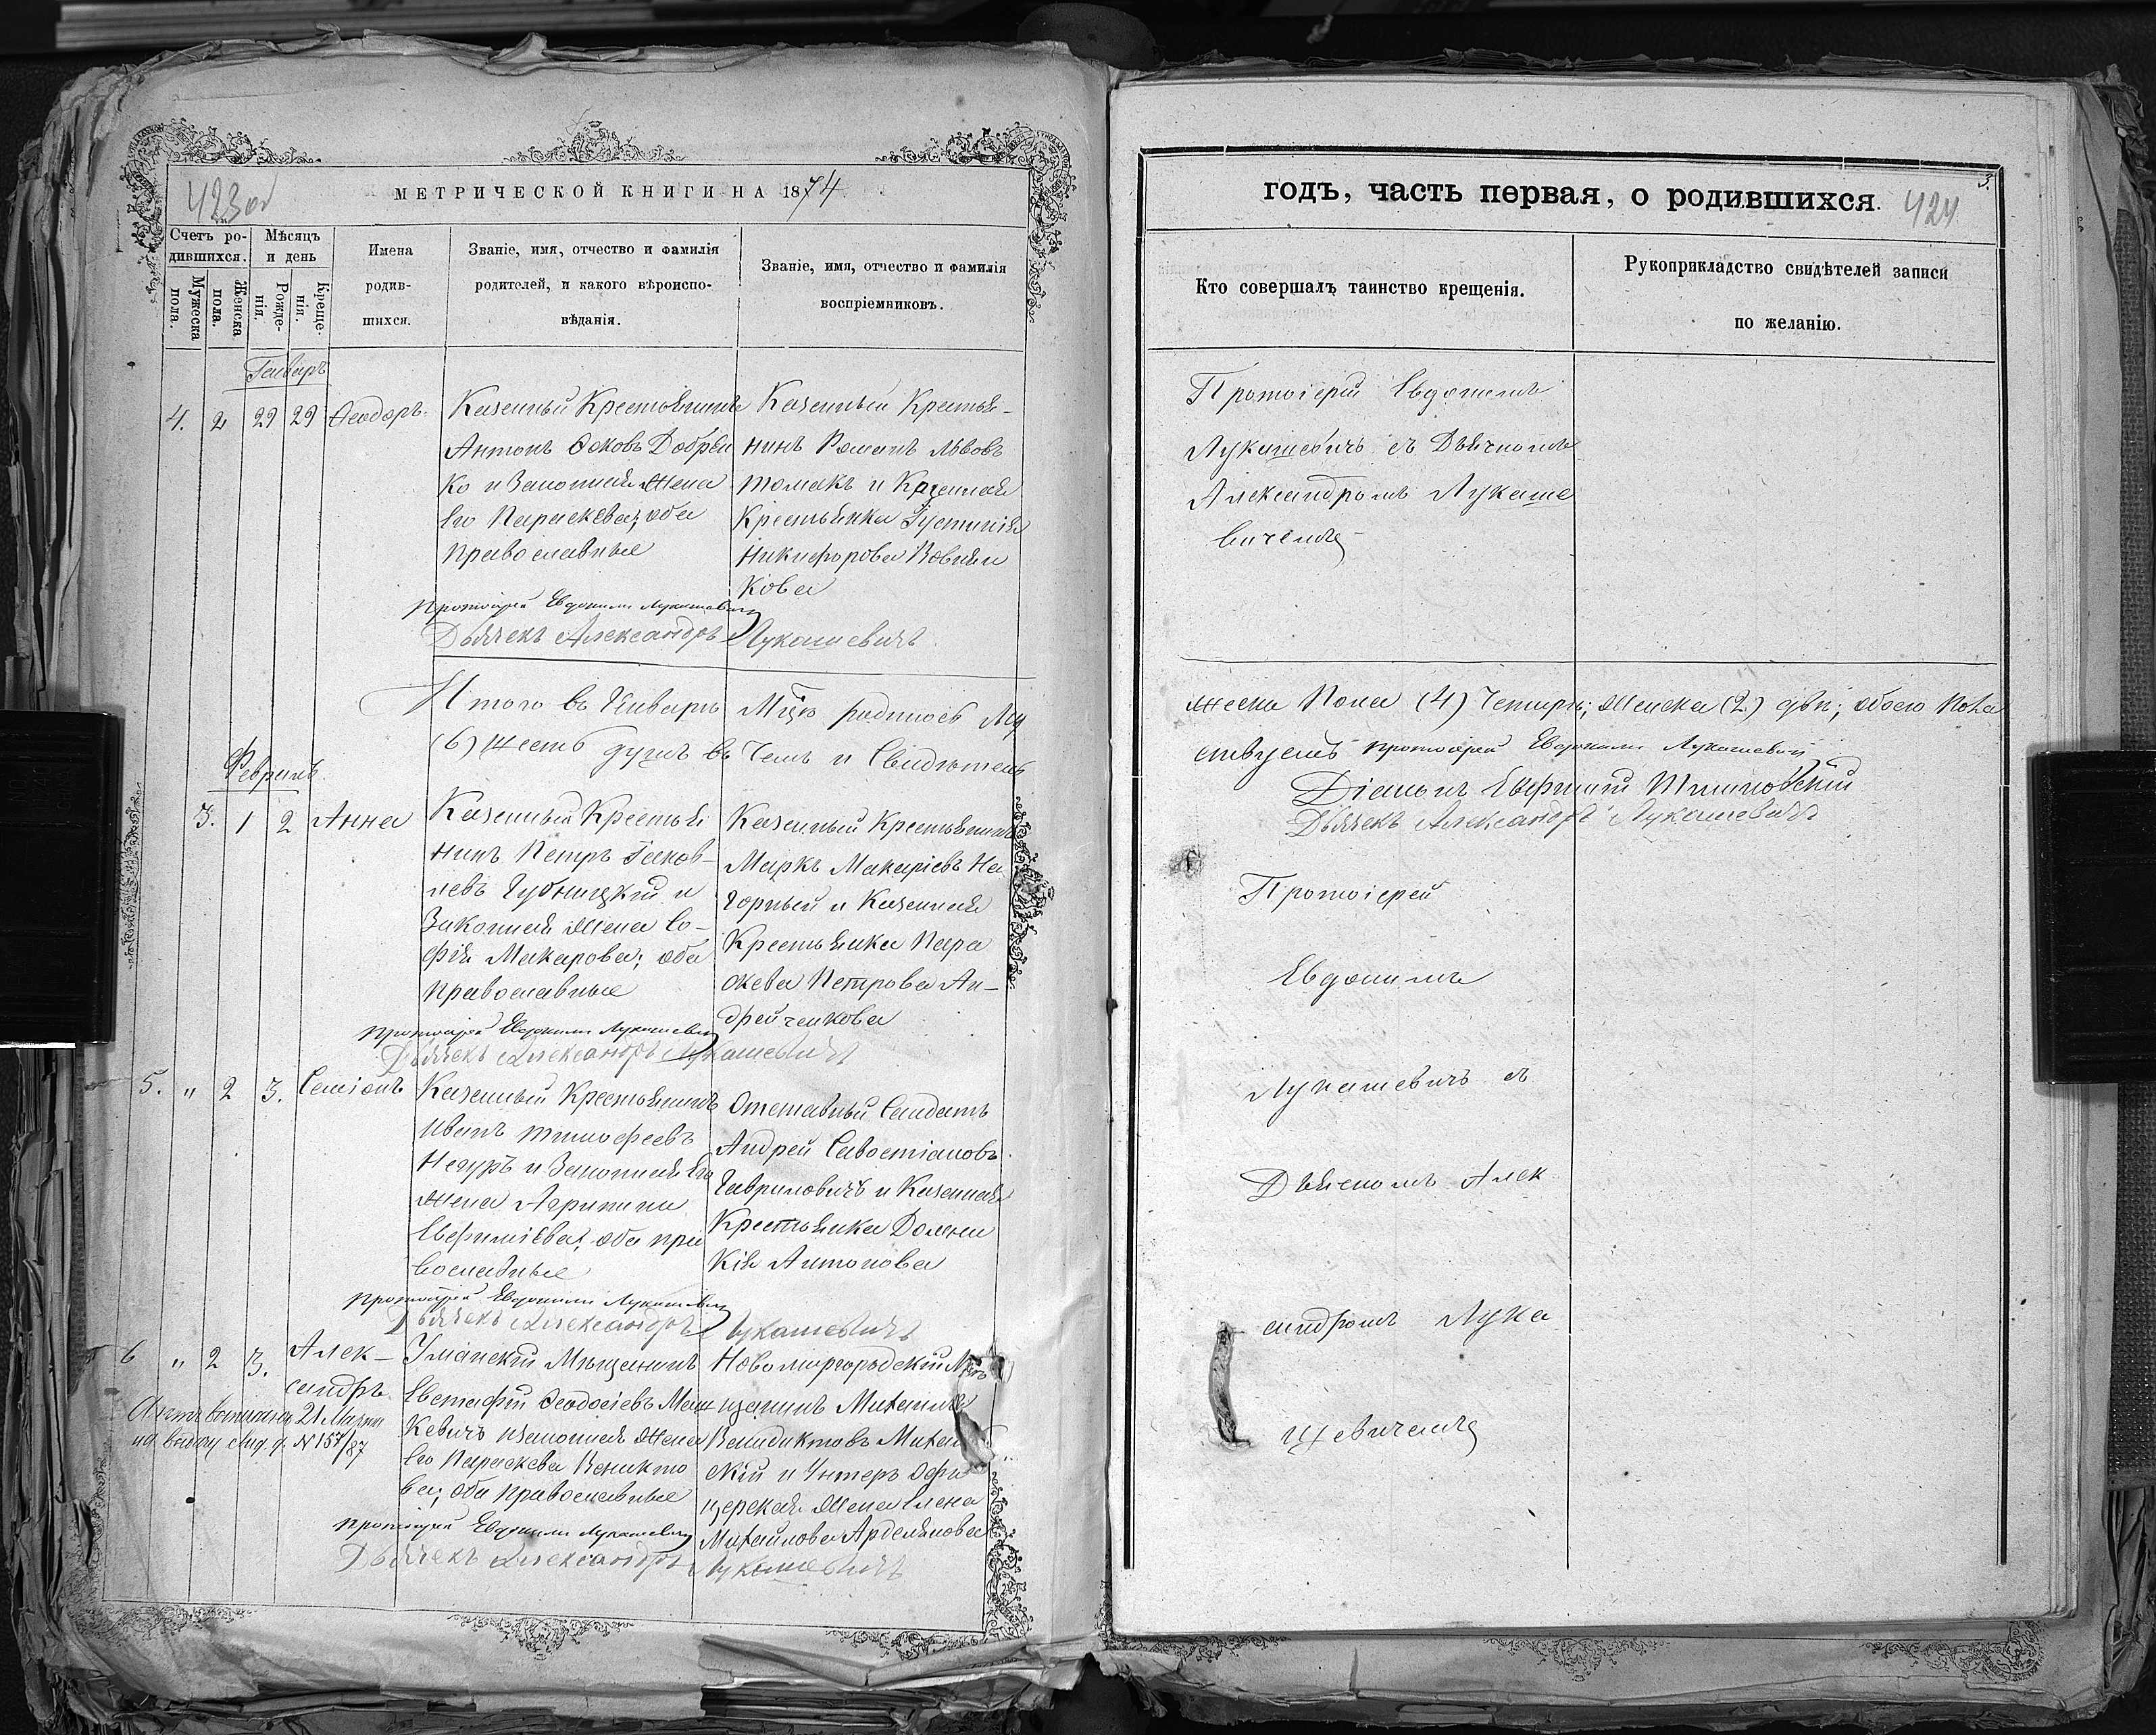 423 об
МЕТРИЧЕСКОЙ КНИГИ НА 1874
Счетъ ро-
дившихся.
Мужеска
пола.
Женска
пола.
Мѣсяцъ
и день
Рожде-
нія.
Креще-
нія.
Имена
родив-
шихся.
Званіе, имя, отчество и фамилія
родителей, и какого вѣроиспо-
вѣданія.
Званіе, имя, отчество и фамилія
воспріемниковъ.
Генварь
4. 2 29 29 Ѳеодоръ.
Казенный Крестьянинъ
Антонъ Добрян
ко и Законная Жена
Его Параскева; оба
православные
Казенный Крестья-
нинъ Романъ Львовъ
Томакъ и Казенная
Крестьянка Іустинія
Никифорова Вовнян
кова
Протоіерей Евдокимъ Лукашевичъ
Дьячекъ Александръ Лукашевичъ
Итого въ Январѣ Мцѣ родилось Му
(6) Шесть душъ въ Чемъ и Свидѣтель
Февраль.
3. 1 2 Анна
Казенный Крестья
нинъ Петръ Іаков-
левъ Губницкій и
Законная Жена Со-
фія Макарова; оба
православные
Казенный Крестьянинъ
Маркъ Макаріевъ На
горный и Казенная
Крестьянка Пара
скева Петрова Ан-
дрейченкова
Протоіерей Евдокимъ Лукашевичъ
Дьячекъ Александръ Лукашевичъ
5. " 2 3. Симіонъ
Казенный Крестьянинъ
Иванъ Тимофеевъ
и Законная Его
Жена Агрипина
Евфиміева; оба пра
вославные
Отставный Солдатъ
Андрей Савостіановъ
Гавриловичъ и Казенная
Крестьянка Домни
кія Антонова
Протоіерей Евдокимъ Лукашевичъ
Дьячекъ Александръ Лукашевичъ
6 " 2 3. Алек-
сандръ
Уманскій Мѣщанинъ
Евстафій Ѳеодосіевъ Маш
кевичъ и законная Жена
Его Параскева Венкто
ва; оба православные
Новомиргородскій Мѣ
щанинъ Михаилъ
Венидиктовъ
скій и Унтеръ Офи
церская Жена Елена
Михайлова Арделянова
21 Марта
на выдачу N 157/87
Протоіерей Евдокимъ Лукашевичъ
Дьячекъ Александръ Лукашевичъ
3.
годъ, часть первая, о родившихся.
424
Кто совершалъ таинство крещенія.
Рукоприкладство свидѣтелей записи
по желанію.
Протоіерей Евдокимъ
Лукашевичъ съ Дьячкомъ
Александромъ Лукаше
вичемъ
жеска Пола (4) Четыри; Женска (2) дви; обоего Пола
ствуемъ Протоіерей Евдокимъ Лукашевичъ
Діаконъ Евфимій
Дьячекъ Александръ Лукашевичъ
Протоіерей
Евдокимъ
Лукашевичъ съ
Дьячкомъ Алек
сандромъ Лука
шевичемъ